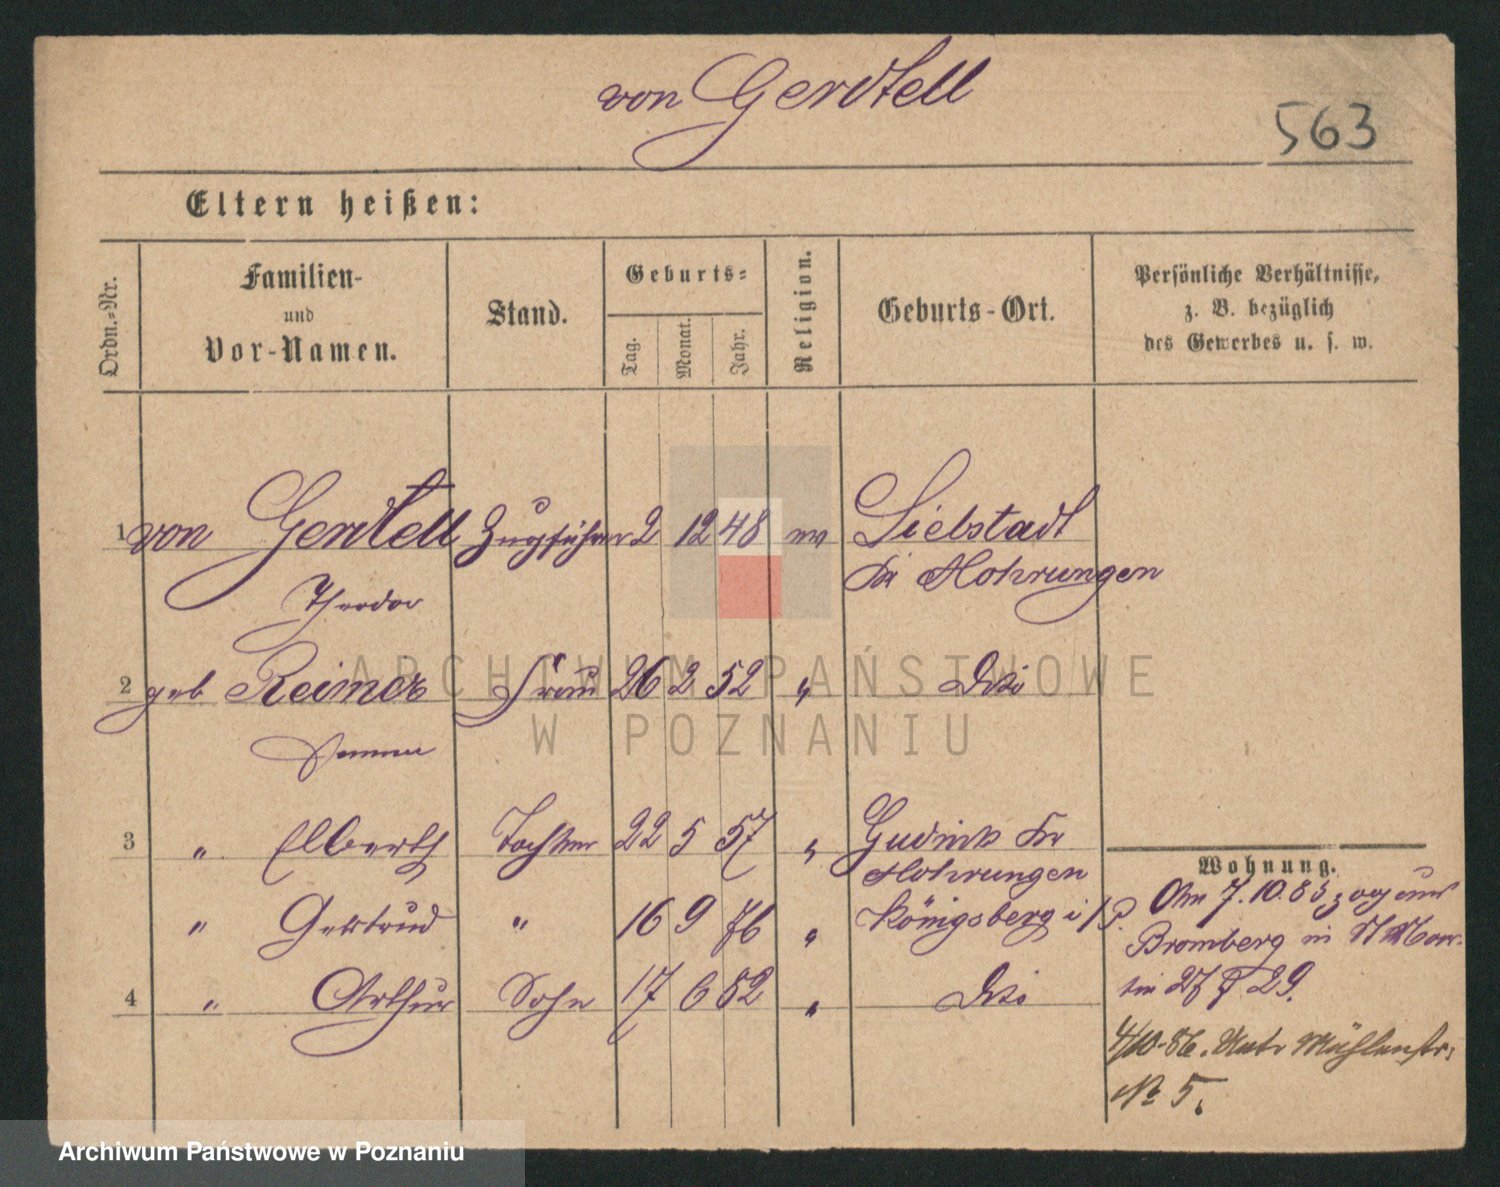 von Gerdtell
563
Eltern heißen:
Ordn.-Nr.
Familien- und Vor-Namen.
Stand.
Geburts-
Tag.
Monat.
Jahr.
Religion.
Geburts-Ort.
Persönliche Verhältnisse,
z. B. bezüglich
des Gewerbes u. s. w.
1 von Gerdtell Zugführer 2 12 48 ev Liebstadt
Theodor Kr Mohrungen
2 geb Reimer Frau 26 2 52 " Dto
3 " Tochter 22 5 57 " Kr
Mohrungen
" Gertrud " 16 9 76 " Königsberg i/P.
4 " Arthur Sohn 17 6 82 " Dto
Wohnung.
7.10.85 zog aus
Bromberg in St Mar-
tin 29.
4/10.86. Unt. Mühlenstr.
No 5.
ARCHIWUM PAŃSTWOWE
W POZNANIU
Archiwum Państwowe w Poznaniu